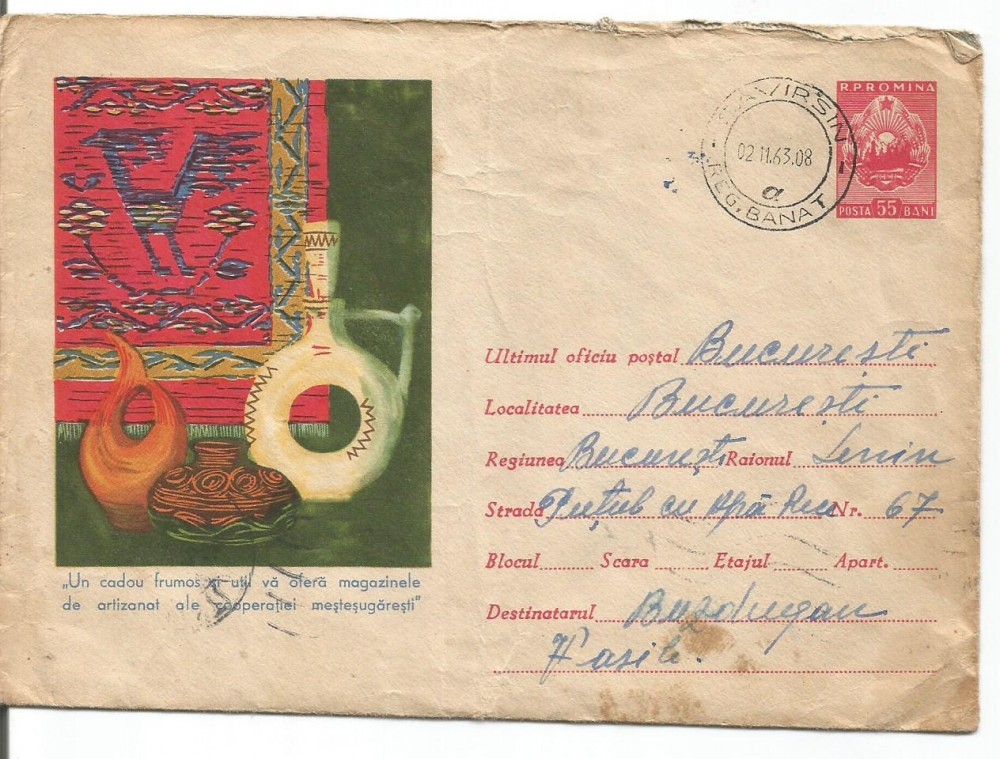 R.P.ROMINA
POSTA 55 BANI
SAVIRSIN
02 11.63.08
a
REG. BANAT
Ultimul oficiu poștal București
Localitatea București
Regiunea București Raionul Lenin
Strada Puțul cu Apă Rece Nr. 67
Blocul Scara Etajul Apart.
Destinatarul Buzdugan
Vasile.
„Un cadou frumos și util vă oferă magazinele
de artizanat ale cooperației meșteșugărești"